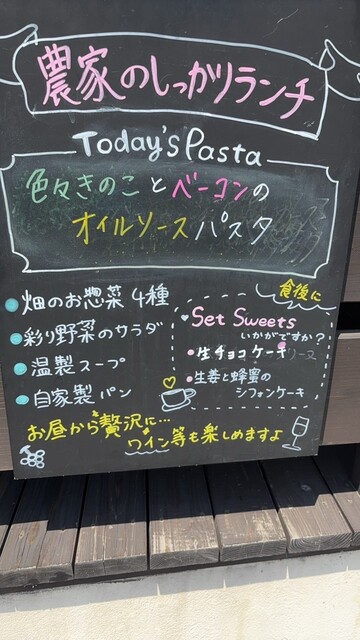 農家のしっかりランチ
Today's Pasta
色々きのことベーコンの
オイルソースパスタ
畑のお惣菜4種
彩り野菜のサラダ
温製スープ
自家製パン
食後に
Set Sweets
いかがですか?
生チョコケーキ
生姜と蜂蜜の
シフォンケーキ
お昼から贅沢に…
ワイン等も楽しめますよ